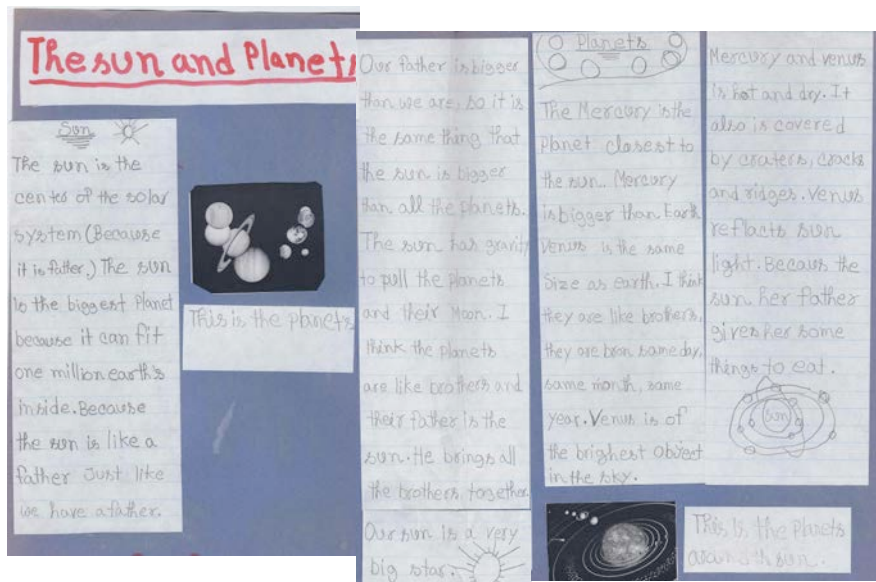 The sun and Planets
Sun
The sun is the
center of the solar
system (Because
it is father.) The sun
is the biggest Planet
because it can fit
one million earth's
inside. Because
the sun is like a
father Just like
we have a father.
This is the planets
Our father is bigger
than we are, so it is
the same thing that
the sun is bigger
than all the planets.
The sun has gravity
to pull the planets
and their Moon. I
think the planets
are like brothers and
their father is the
sun. He brings all
the brothers together.
Our sun is a very
big star.
Planets
The Mercury is the
Planet closest to
the sun. Mercury
is bigger than Earth
Venus is the same
Size as earth. I think
they are like brothers,
they are bron same day,
same month, same
year. Venus is of
the brighest Object
in the sky.
Mercury and venus
is hot and dry. It
also is covered
by craters, cracks
and ridges. Venus
reflacts sun
light. Becaus the
sun her father
gives her some
things to eat.
sun
This is the Planets